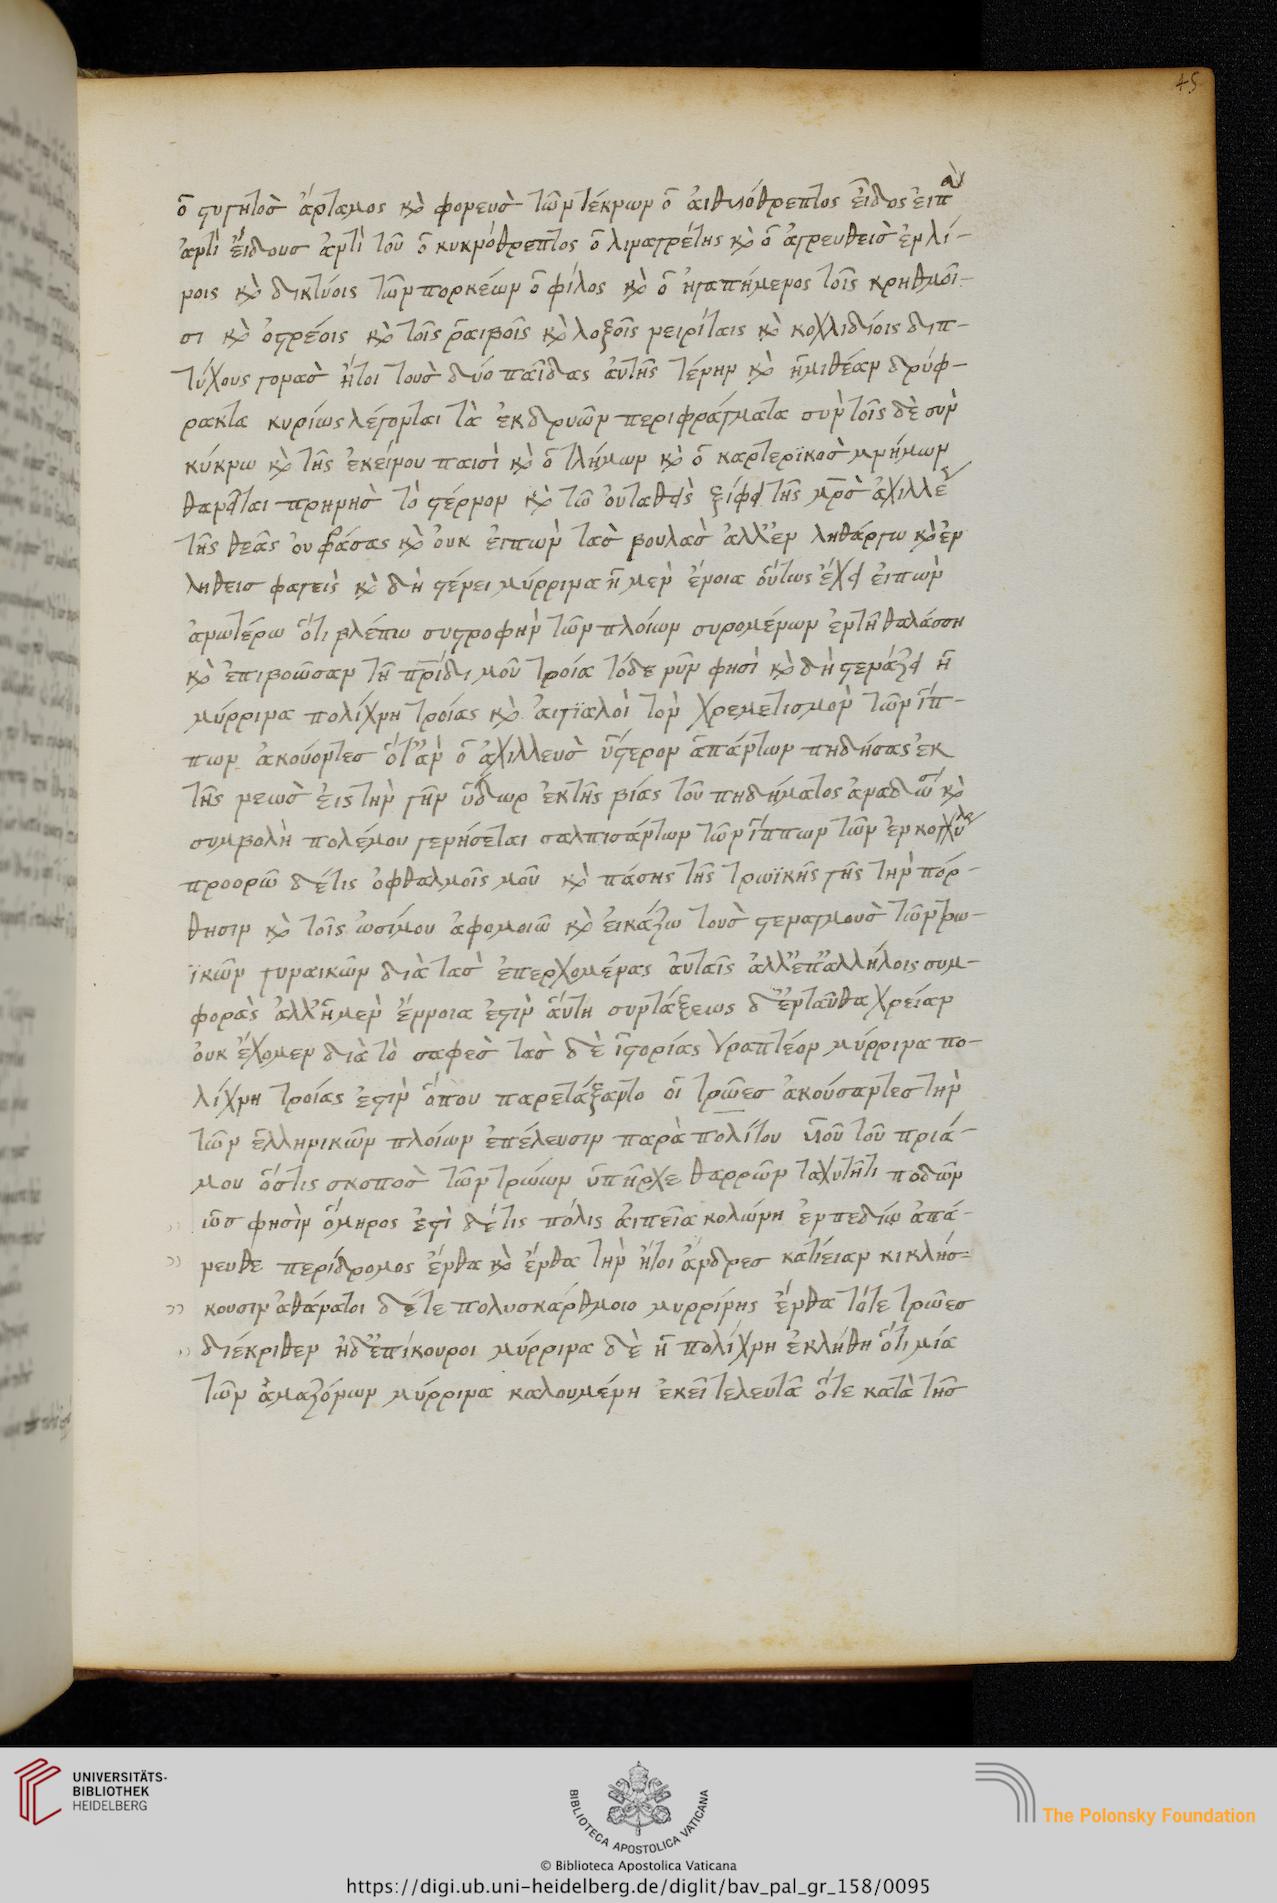 45
ὁ στυγητὸσ ἄρταμος κὶ φονευσ τῶν τέκνων ὁ αἰθυιόθρεπτος εἶδος εἶπὰν
ἀντὶ εἴδουσ ἀντὶ τοῦ ὁ κυκνόθρεπτος ὁ λιναγρέτης κὶ ὁ ἀγρευθεὶσ ἐν λί-
νοις κὶ δικτύοις τῶν πορκέων ὁ φίλος κὶ ὁ ἠγαπήμενος τοῖς κρηθμοῖ-
σι κὶ ὀστρέοις κὶ τοῖς ῥαιβοῖς κὶ λοξοῖς νειρίταις κὶ κοχλιδίοις διπ-
τύχους γονασ ἤτοι τουσ δύο παῖδας ἀυτῆς τένην κὶ ἡμιθέαν δρύφ-
ρακτα κυρίως λέγονται τὰ ἐκ δρυῶν περιφράγματα συν τοῖς δὲ συν
κύκνω κὶ τῆς ἐκείνου παισὶ κὶ ὁ τλήμων κὶ ὁ καρτερϊκοσ μνήμων
θανεῖται πρηνησ τὸ στέρνον κὶ τῶ ὀυταθεὶς ξίφει τῆς μρσ ἀχιλλέ
τῆς θεᾶς ὀυ φράσας κὶ ὀυκ ἐιπων τασ βουλασ ἀλλ' ἐν ληθάργω κὶ ἐν
ληθεισ φαγεις κὶ δὴ στένει μύρρινα ἡ μεν ἔνοια οὕτως ἔχει ἐιπων
ἀνωτέρω ὅτι βλέπω συστροφην τῶν πλοίων συρομένων ἐν τῆ θαλάσση
κὶ ἐπιβοῶσαν τῆ πρίδι μοῦ τροία τόδε νῦν φησὶ κὶ δὴ στενάζει ἡ
μύρρινα πολίχνη τροίας κὶ ἀιγϊαλοὶ τον χρεμετισμον τῶν ἵπ-
πων ἀκούοντεσ ὅτ' ἂν ὁ ἀχιλλευσ ὕστερον ἁπάντων πηδήσας ἐκ
τῆς νεωσ ἐις την γῆν ὕδωρ ἐκ τῆς βίας τοῦ πηδήματος ἀναδώσ κὶ
συμβολὴ πολέμου γενήσεται σαλπισάντων τῶν ἵππων τῶν ἐν κογχύλ
προορῶ δέτις ὀφθαλμοῖς μοῦ κὶ πάσης τῆς τρωϊκῆς γῆς την πόρ-
θησιν κὶ τοῖς ὠσίμου ἀφομοιῶ κὶ ἐικάζω τουσ στεναγμουσ τῶν τρω-
ϊκῶν γυναικῶν διὰ τασ ἐπερχομένας ἀυταῖς ἀλλ' ἐπ' ἀλλήλοις συμ-
φοράς ἀλλ' ἡ μεν ἔννοια ἐστιν ἅυτη συντάξεως δ' ἐνταῦθα χρείαν
ὀυκ ἔχομεν διὰ τὸ σαφεσ τασ δὲ ἱστορίας γραπτέον μύρρινα πο-
λίχνη τροίας ἐστιν ὅπου παρετάξαντο οἱ τρῶεσ ἀκούσαντεσ την
τῶν ἑλληνικῶν πλοίων ἐπέλευσιν παρὰ πολίτου υἱοῦ τοῦ πριά-
μου ὅστις σκοποσ τῶν τρώων ὑπῆρχε θαρρῶν ταχυτῆτι ποδῶν
ὡσ φησιν ὅμηρος ἐστὶ δέτις πόλις ἀιπεῖα κολώνη ἐν πεδίω ἀπά-
νευθε περίδρομος ἔνθα κὶ ἔνθα την ἤτοι ἄνδρεσ κατίειαν κικλήσ=
κουσιν ἀθάνατοι δέτε πολυσκάρθμοιο μυρρίνης ἔνθα τότε τρῶεσ
διέκριθεν ἠδ' ἐπίκουροι μύρρινα δὲ ἡ πολίχνη ἐκλήθη ὅτι μία
τῶν ἀμαζόνων μύρρινα καλουμένη ἐκεῖ τελευτᾶ ὅτε κατὰ τῆσ
UNIVERSITÄTS-
BIBLIOTHEK
HEIDELBERG
BIBLIOTECA APOSTOLICA VATICANA
The Polonsky Foundation
© Biblioteca Apostolica Vaticana
https://digi.ub.uni-heidelberg.de/diglit/bav_pal_gr_158/0095